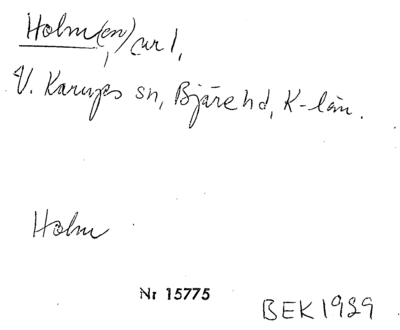 Holm(en), cur 1,
V. Karups sn, Bjäre hd, K-län.
Holm
Nr 15775
BEK 1929